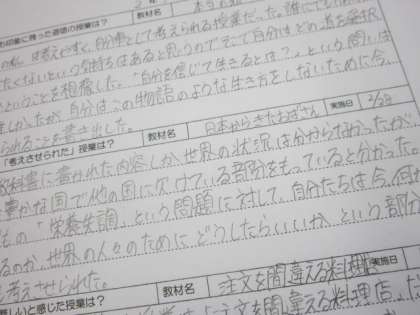 も印象に残った道徳の授業は？ 教材名
考えやすく、自分事として考えられる授業だった。誰にでも
たくないという気持ちはあると思うのでそこで自分はどの道を選択
ということを想像した。「自分を信じて生きるとは？」という問いは
しかたが、自分はこの物語のような生き方をしないために今、
られることを書き出した。
「考えさせられた」授業は？ 教材名 日本からきたおばさん 実施日
教科書に書かれた内容しか、世界の状況は分からなかったが
豊かな国で他の国に欠けている部分をもっていると分かった。
もの「栄養失調」という問題に対して、自分たちは今、何が
るのか、世界の人々のためにどうしたらいいか、という部分
考えさせられた。
しいと感じた授業は？ 教材名 注文を間違える料理店 実施日
「注文を間違える料理店」